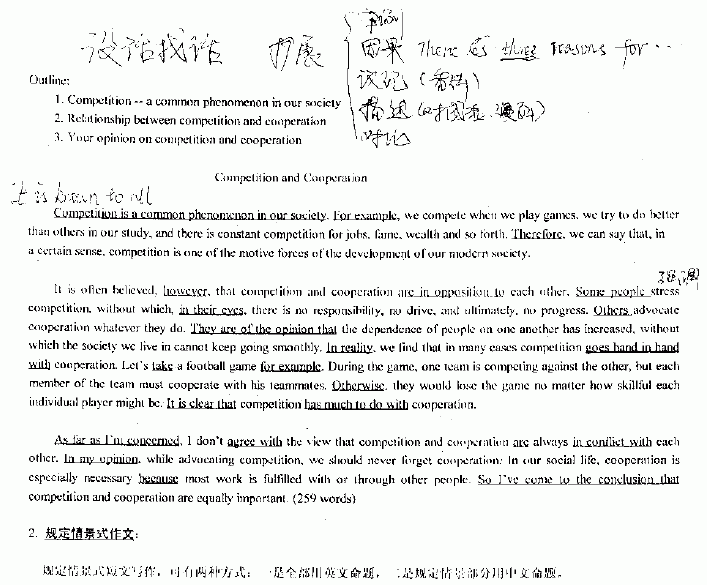 没话找话 扩展
因果 There is three reasons for ...
Outline:
1. Competition -- a common phenomenon in our society
2. Relationship between competition and cooperation
3. Your opinion on competition and cooperation
讨论
Competition and Cooperation
It is known to all
Competition is a common phenomenon in our society. For example, we compete when we play games, we try to do better
than others in our study, and there is constant competition for jobs, fame, wealth and so forth. Therefore, we can say that, in
a certain sense, competition is one of the motive forces of the development of our modern society.
强调
It is often believed, however, that competition and cooperation are in opposition to each other. Some people stress
competition, without which, in their eyes, there is no responsibility, no drive, and ultimately, no progress. Others advocate
cooperation whatever they do. They are of the opinion that the dependence of people on one another has increased, without
which the society we live in cannot keep going smoothly. In reality, we find that in many cases competition goes hand in hand
with cooperation. Let's take a football game for example. During the game, one team is competing against the other, but each
member of the team must cooperate with his teammates. Otherwise, they would lose the game no matter how skillful each
individual player might be. It is clear that competition has much to do with cooperation.
As far as I'm concerned, I don't agree with the view that competition and cooperation are always in conflict with each
other. In my opinion, while advocating competition, we should never forget cooperation. In our social life, cooperation is
especially necessary because most work is fulfilled with or through other people. So I've come to the conclusion that
competition and cooperation are equally important. (259 words)
2. 规定情景式作文：
规定情景式短文写作，可有两种方式：一是全部用英文命题，二是规定情景部分用中文命题。